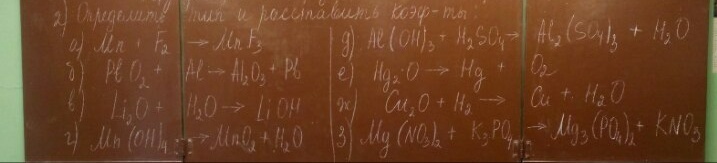 2) Определить тип и расставить коэф-ты:
а) Mn + F₂ → MnF₃
б) PbO₂ + Al → Al₂O₃ + Pb
в) Li₂O + H₂O → LiOH
г) Mn(OH)₄ → MnO₂ + H₂O
д) Al(OH)₃ + H₂SO₄ → Al₂(SO₄)₃ + H₂O
е) Hg₂O → Hg + O₂
ж) Cu₂O + H₂ → Cu + H₂O
з) Mg(NO₃)₂ + K₃PO₄ → Mg₃(PO₄)₂ + KNO₃